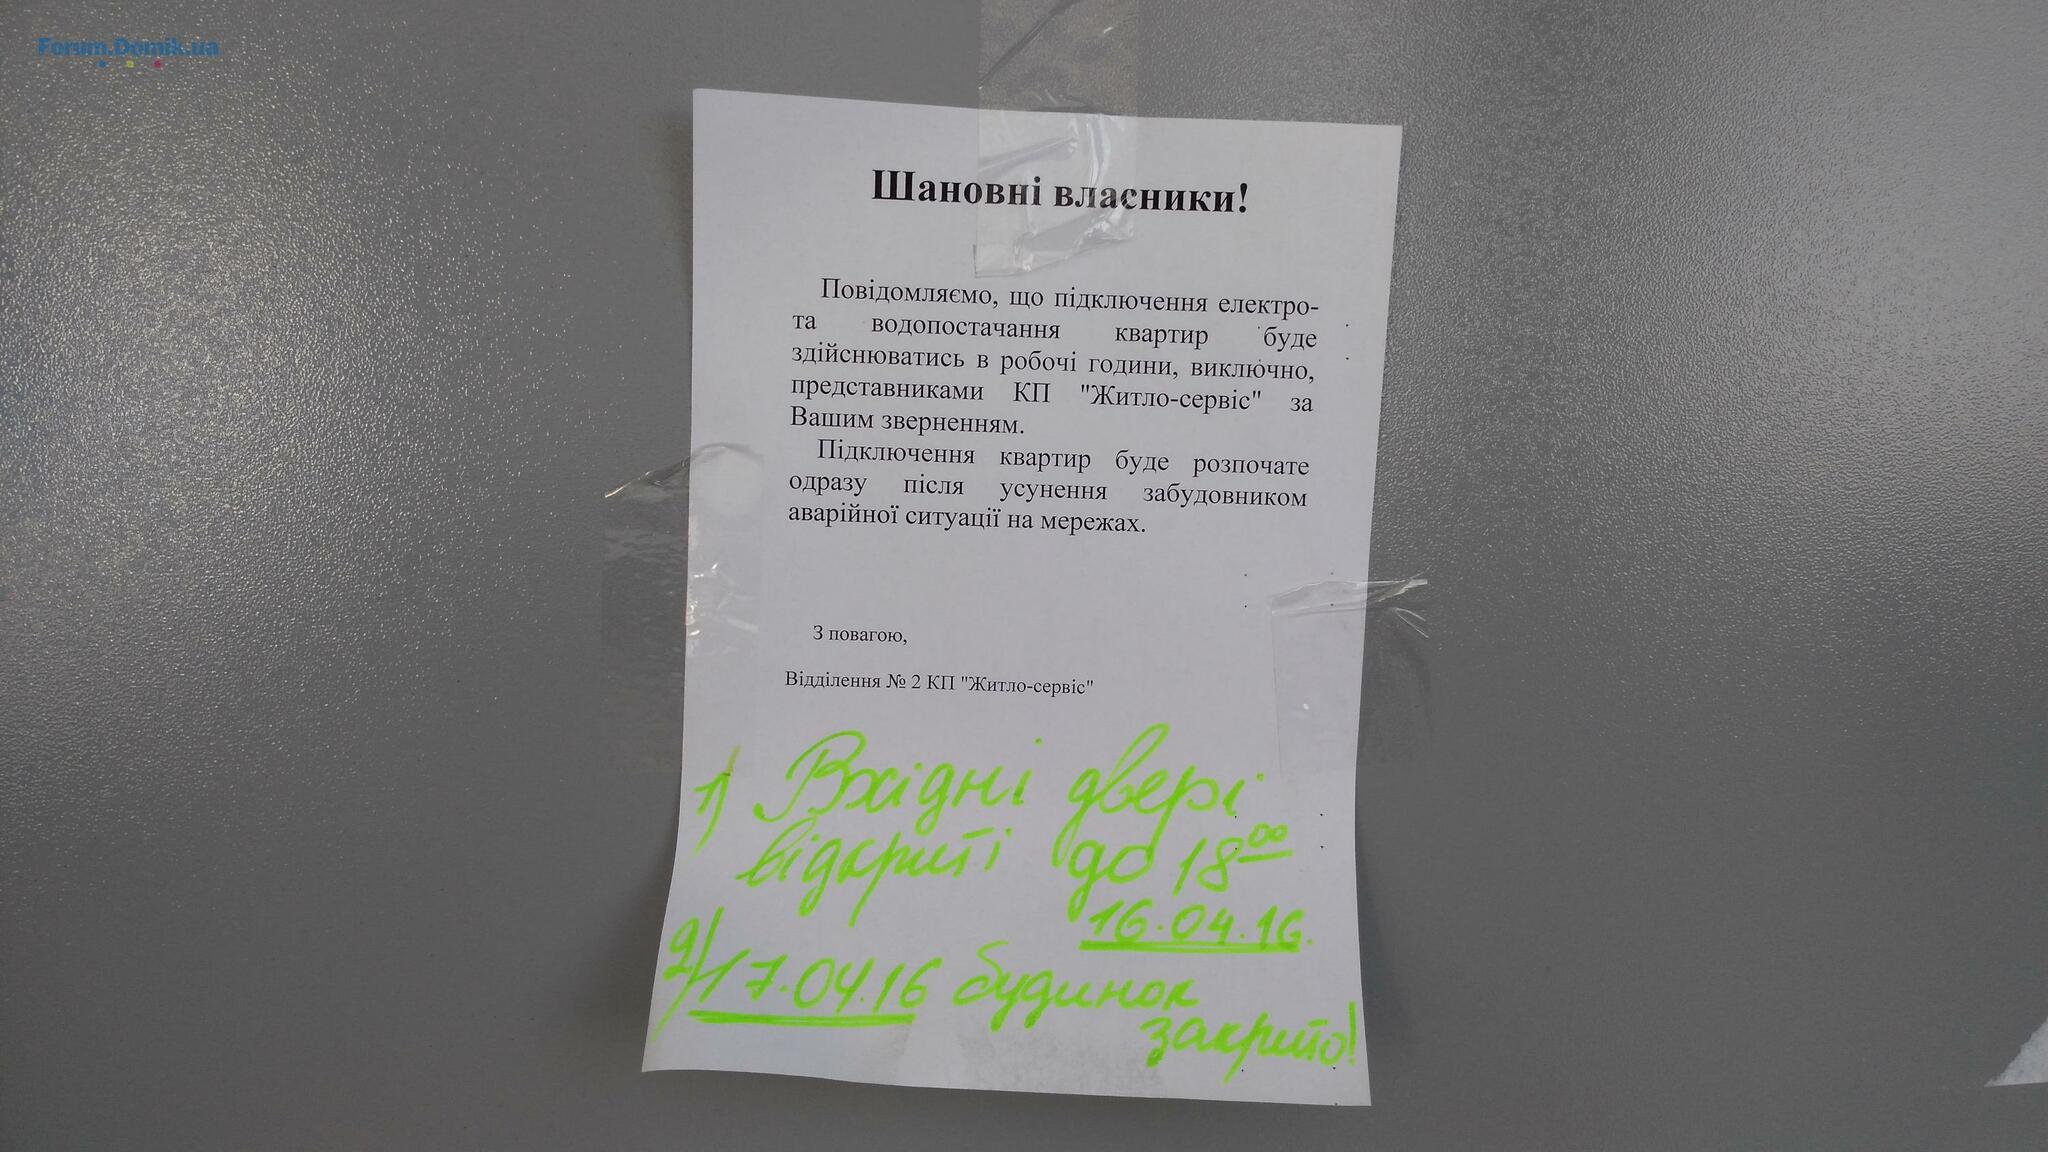 Forum.Domik.ua
Шановні власники!
Повідомляємо, що підключення електро-
та водопостачання квартир буде
здійснюватись в робочі години, виключно,
представниками КП "Житло-сервіс" за
Вашим зверненням.
Підключення квартир буде розпочате
одразу після усунення забудовником
аварійної ситуації на мережах.
З повагою,
Відділення № 2 КП "Житло-сервіс"
1) Вхідні двері
відкриті до 18⁰⁰
16.04.16.
2) 17.04.16 будинок
закрито!